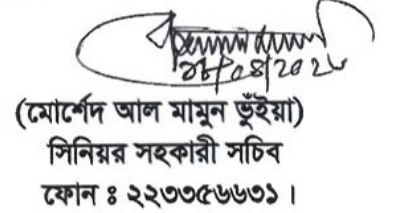 (মোর্শেদ আল মামুন ভূঁইয়া)
সিনিয়র সহকারী সচিব
ফোন ঃ ২২৩৩৫৬৬৩১ ।